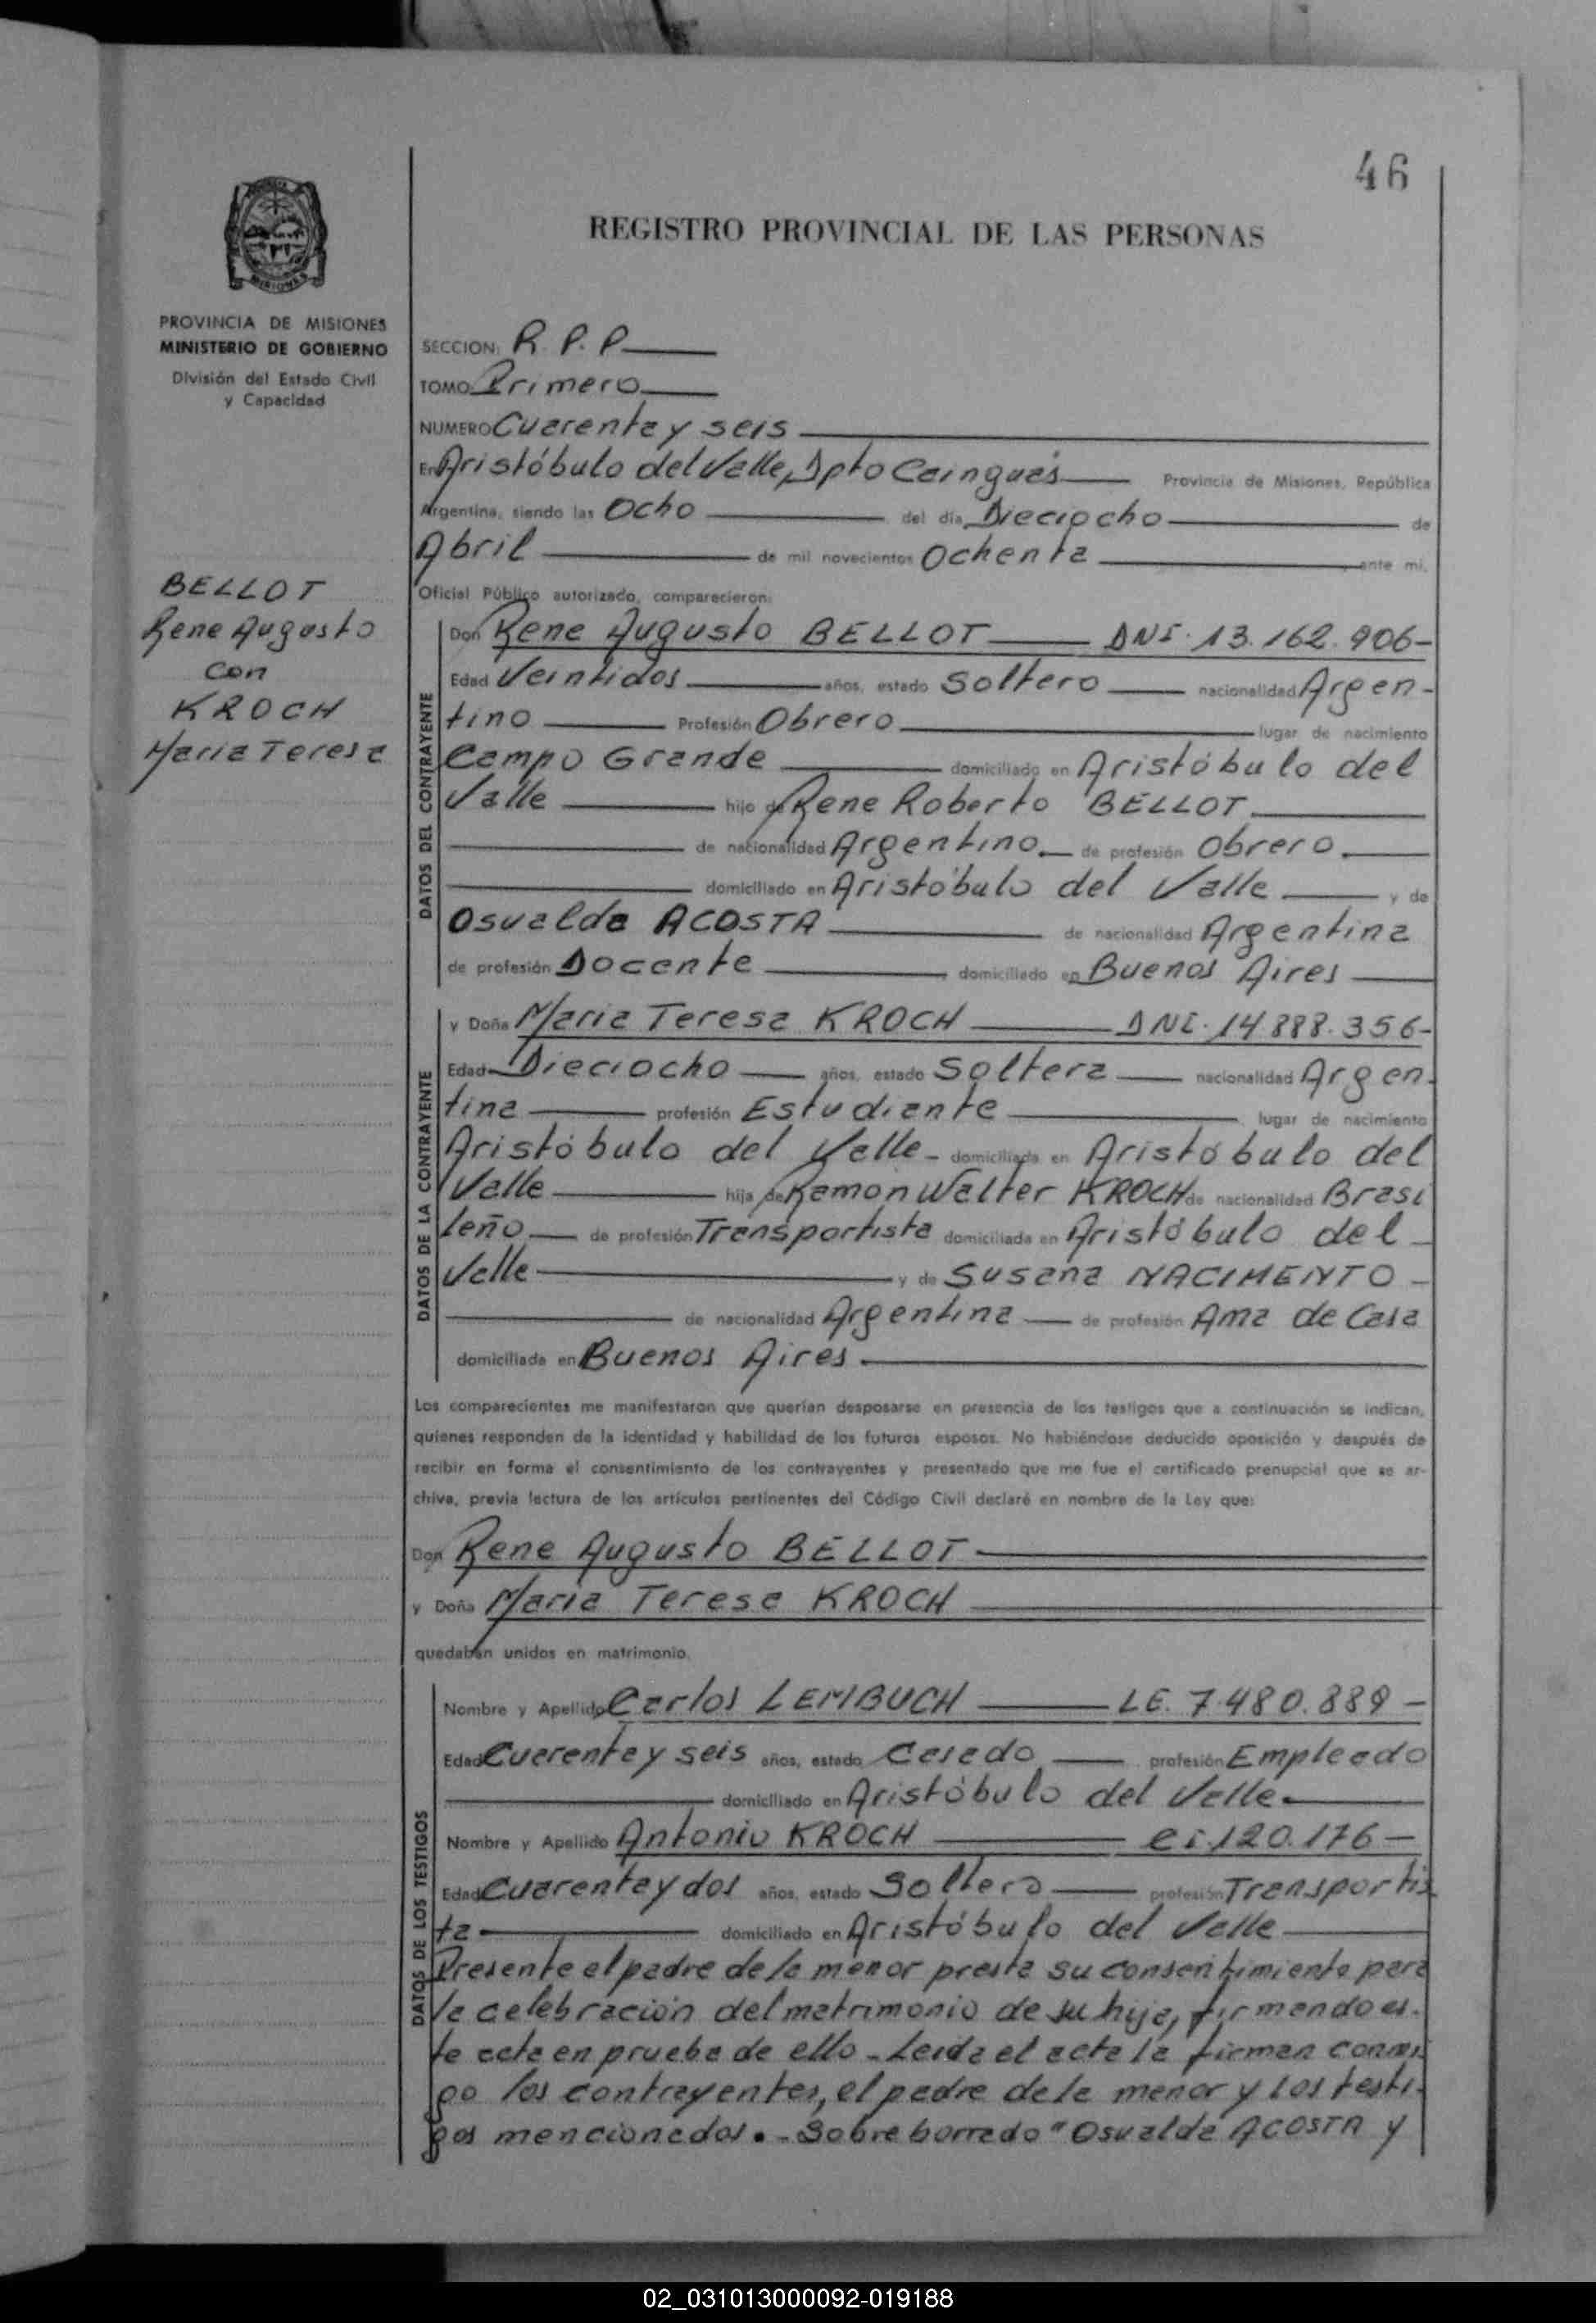 46
REGISTRO PROVINCIAL DE LAS PERSONAS
PROVINCIA DE MISIONES
MINISTERIO DE GOBIERNO
División del Estado Civil
y Capacidad
SECCION: R. P. P.
TOMO: Primero
NUMERO Cuarenta y seis
En Aristóbulo del Valle, Dpto Cainguás Provincia de Misiones, República
Argentina, siendo las Ocho del día Dieciocho de
Abril de mil novecientos Ochenta ante mi,
Oficial Público autorizado, comparecieron:
BELLOT
Rene Augusto
con
KROCH
Maria Teresa
DATOS DEL CONTRAYENTE
Don Rene Augusto BELLOT DNI. 13.162.906-
Edad Veintidos años, estado Soltero nacionalidad Argen-
tino Profesión Obrero lugar de nacimiento
Campo Grande domiciliado en Aristóbulo del
Valle hijo de Rene Roberto BELLOT
de nacionalidad Argentino de profesión Obrero
domiciliado en Aristóbulo del Valle y de
Osvalda ACOSTA de nacionalidad Argentina
de profesión Docente domiciliado en Buenos Aires
DATOS DE LA CONTRAYENTE
y Doña Maria Teresa KROCH DNI. 14.888.356-
Edad Dieciocho años, estado Soltera nacionalidad Argen-
tina profesión Estudiante lugar de nacimiento
Aristóbulo del Valle - domiciliada en Aristóbulo del
Valle hija de Ramon Walter KROCH de nacionalidad Brasi
leño de profesión Transportista domiciliada en Aristóbulo del
Valle y de Susana NACIMENTO
de nacionalidad Argentina de profesión Ama de Casa
domiciliada en Buenos Aires
Los comparecientes me manifestaron que querían desposarse en presencia de los testigos que a continuación se indican,
quienes responden de la identidad y habilidad de los futuros esposos. No habiéndose deducido oposición y después de
recibir en forma el consentimiento de los contrayentes y presentado que me fue el certificado prenupcial que se ar-
chiva, previa lectura de los artículos pertinentes del Código Civil declaré en nombre de la Ley que:
Don Rene Augusto BELLOT
y Doña Maria Teresa KROCH
quedaban unidos en matrimonio.
DATOS DE LOS TESTIGOS
Nombre y Apellido Carlos LEMBUCH LE. 7.480.889 -
Edad Cuarenta y seis años, estado Casado profesión Empleado
domiciliado en Aristóbulo del Valle
Nombre y Apellido Antonio KROCH CI. 120.176 -
Edad Cuarenta y dos años, estado Soltero profesión Transportis
ta domiciliado en Aristóbulo del Valle
Presente el padre de la menor presta su consentimiento para
la celebración del matrimonio de su hija, firmando es-
te acta en prueba de ello - Leida el acta la firman conmi
go los contrayentes, el padre de la menor y los testi-
gos mencionados. - Sobre borrado "Osvalda ACOSTA y
02_031013000092-019188